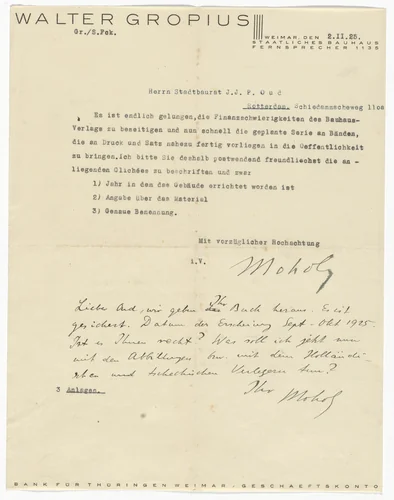 WALTER GROPIUS
WEIMAR, DEN 2.II.25.
STAATLICHES BAUHAUS
FERNSPRECHER 1135
Gr./S.Fck.
Herrn Stadtbaurat J.J.P. O u d
Rotterdam. Schiedamscheweg
Es ist endlich gelungen, die Finanzschwierigkeiten des Bauhaus-
Verlags zu beseitigen und nun schnell die geplante Serie an Bänden,
die an Druck und Satz nahezu fertig vorliegen in die Oeffentlichkeit
zu bringen. Ich bitte Sie deshalb postwendend freundlichst die an-
liegenden Clichées zu beschriften und zwar
1) Jahr in dem das Gebäude errichtet worden ist
2) Angabe über das Material
3) Genaue Benennung.
Mit vorzüglicher Hochachtung
i.V.
Moholy
Liebe Oud, wir geben Ihr Buch heraus. Es ist
gesichert. Datum der Erscheinung Sept-Okt 1925.
Ist es Ihnen recht? Was soll ich jetzt nun
mit den Abbildungen bzw. mit dem Holländi-
schen und tschechischen Verlegern tun?
Ihr Moholy
3 Anlagen.
BANK FÜR THÜRINGEN WEIMAR, GESCHAEFTSKONTO